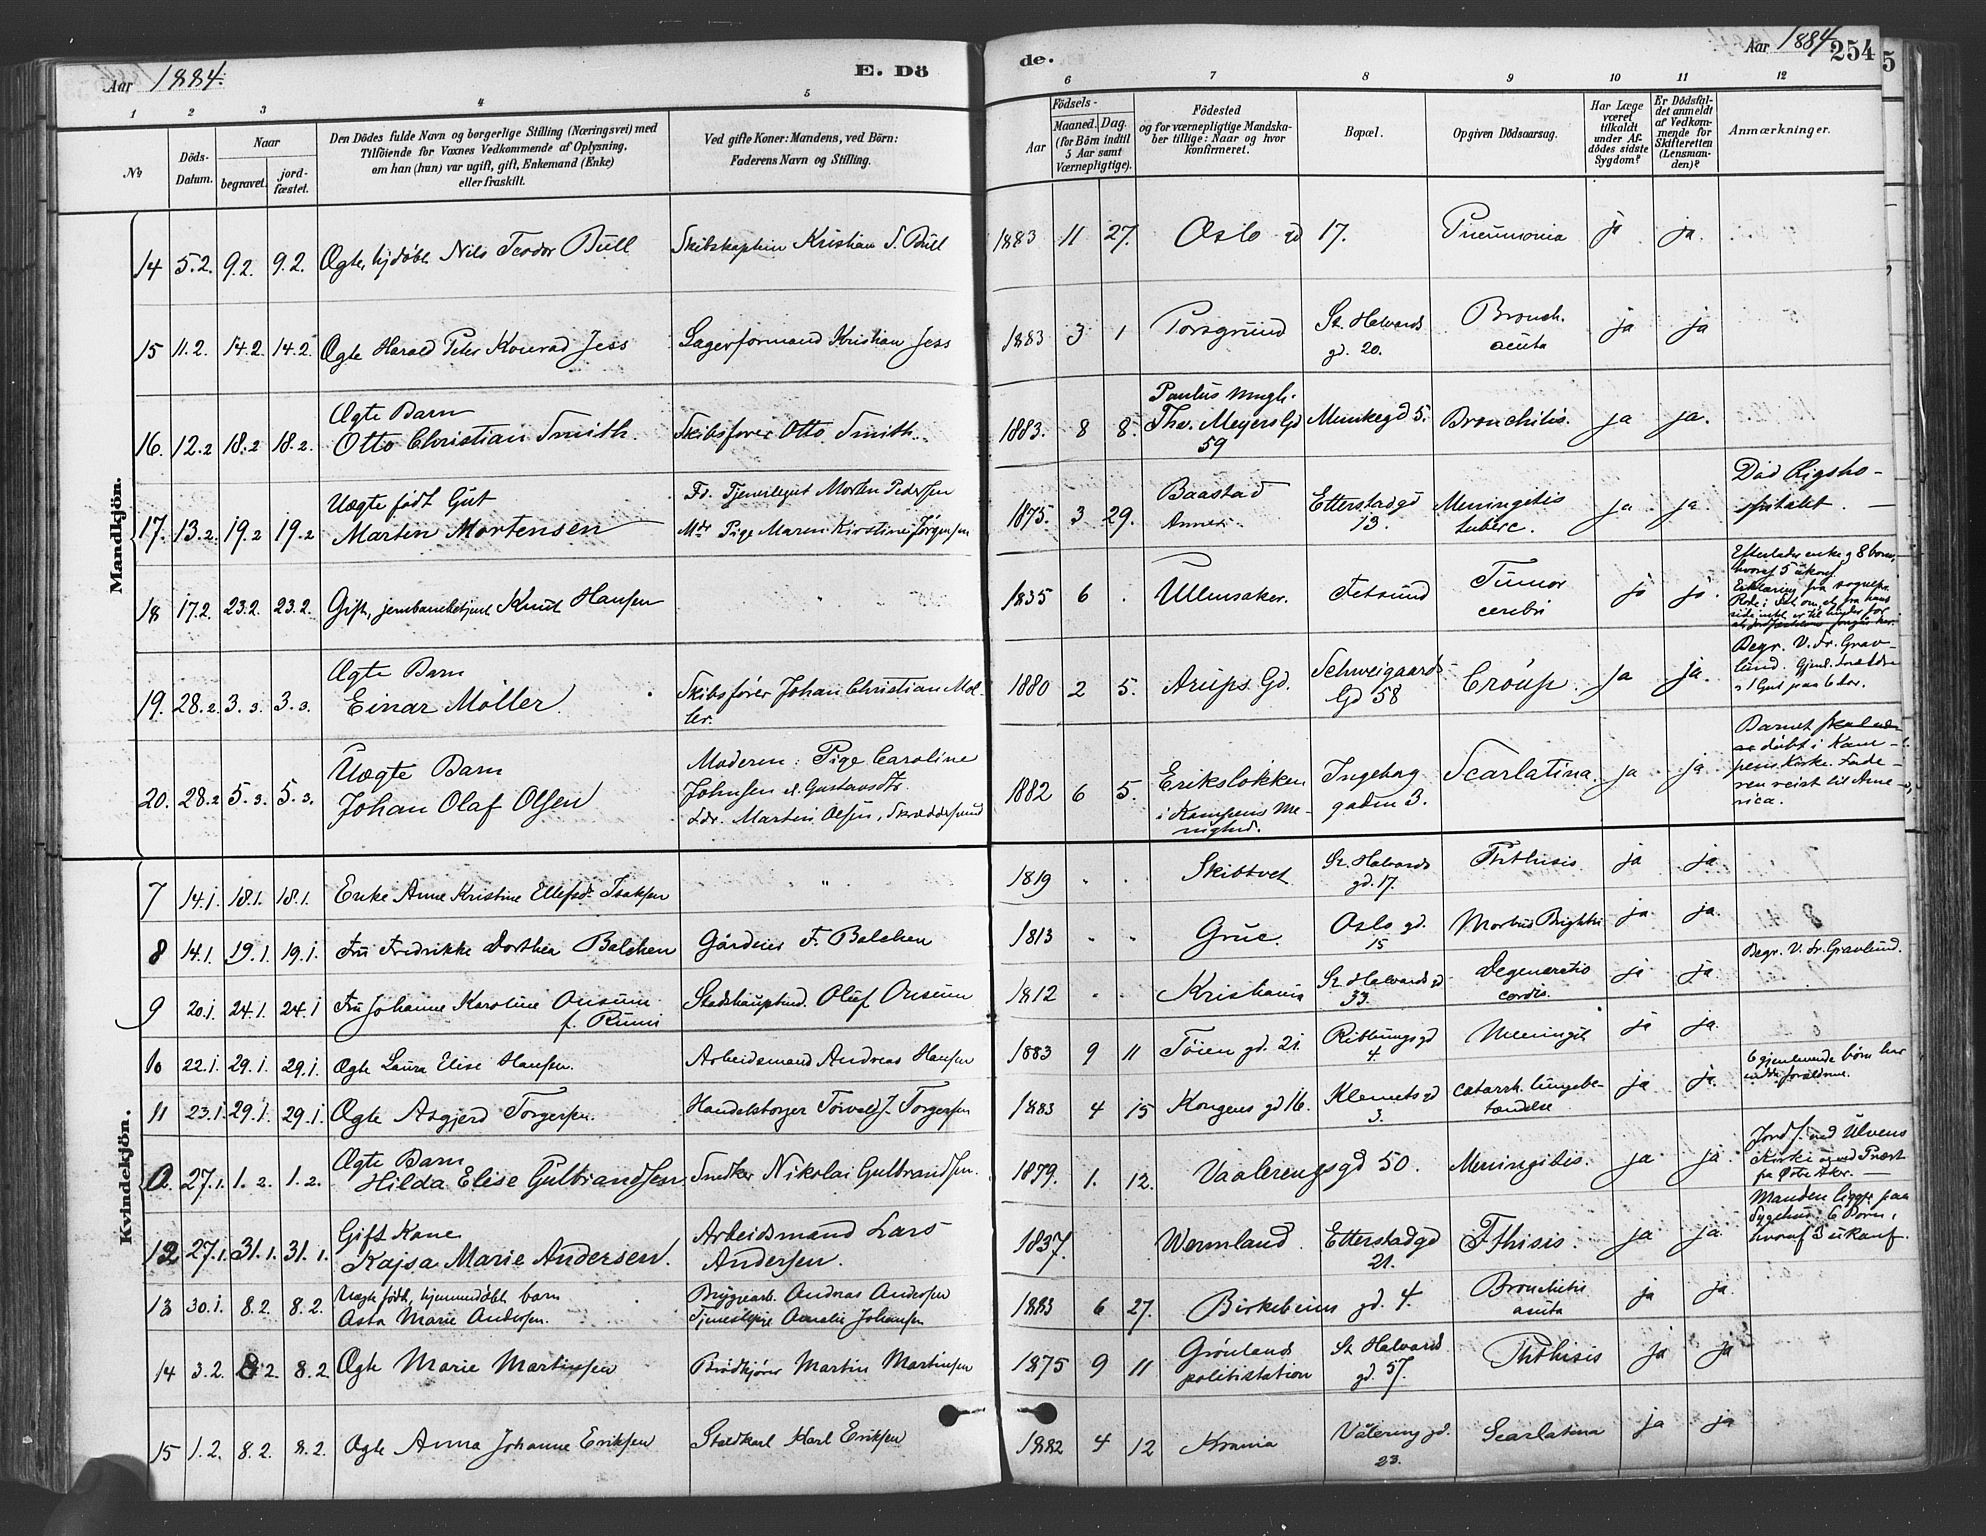 Aar 1884. E. Dö
de. Aar 1884 254
1 2 3 4 5 6 7 8 9 10 11 12
No
Döds-Datum.
Naar
begravet.
jord-fæstet.
Den Dödes fulde Navn og borgerlige Stilling (Næringsvei) med
Tilföiende for Voxnes Vedkommende af Oplysning,
om han (hun) var ugift, gift, Enkemand (Enke)
eller fraskilt.
Ved gifte Koner: Mandens, ved Börn:
Faderens Navn og Stilling.
Födsels-
Aar
Maaned. Dag.
(for Börn indtil
5 Aar samt
Værnepligtige).
Födested
og for værnepligtige Mandska-
ber tillige: Naar og hvor
konfirmeret.
Bopæl.
Opgiven Dödsaarsag.
Har Læge
været
tilkaldt
under Af-
dödes sidste
Sygdom?
Er Dödsfal-
det anmeldt
af Vedkom-
mende for
Skifteretten
(Lensman-
den)?
Anmærkninger.
Mandkjön.
14 5.2. 9.2. 9.2. Ægte, hjdøbt Nils Teodor Bull Skibskaptein Kristian S. Bull 1883 11 27. Oslo gd 17. Pneumonia ja ja.
15 11.2. 14.2. 14.2. Ægte Harald Peter Konrad Jess Lagerformand Kristian Jess 1883 3 1 Porsgrund St. Halvards gd. 20. Bronch. acuta ja ja
16. 12.2 18.2 18.2. Ægte Barn Otto Christian Smith. Skibsfører Otto Smith. 1883. 8 8. Paulus Mngh. Thv. Meyers Gd 59 Munkegd 5. Bronchitis. ja ja.
17. 13.2. 19.2 19.2 Uægte født Gut Martin Mortensen Fd. Tjenestegut Morten Pedersen Mdr Pige Maren Kirstine Jörgensen 1875. 3 29. Baastad Annex. Etterstadgd 13. Meningitis tuberc. ja ja. Död Rigsho-spitalet.
18 17.2 23.2. 23.2. Gift, jernbanebetjent Knut Hansen 1835 6 . Ullensaker. Fetsund Tumor cerebri ja ja. Efterlader enke og 8 born, hvoraf 5 ukonf. Erklæring fra sognepr.
19. 28.2. 3.3. 3.3. Ægte Barn Einar Möller. Skibsfører Johan Christian Möl-ler. 1880 2 5. Arups Gd. Schweigaards-Gd 58 Croup. ja ja. Begr. V. Fr. Grav-lund.
20. 28.2 5.3. 5.3. Uægte Barn Johan Olaf Olsen Moderen: Pige Caroline Johnsen el. Gustavsdtr. Fdr. Martin Olsen, Skræddersvend 1882 6 5. Erikslökken i Kampens Me-nighed. Ingeborg gaden 3. Scarlatina. ja ja. Barnet døbt i Kam-pens Kirke. Fade-ren reist til Ame-rica.
Kvindekjön.
7 14.1. 18.1. 18.1. Enke Anne Kristine Ellefsd. Isaksen " 1819 . . Skibtvet St. Halvards gd. 17. Phthisis ja ja
8 14.1. 19.1. 19.1. Fru Fredrikke Dorthea Balchen Gårdeier F. Balchen 1813 . . Grue. Oslo gd. 15 Morbus Brightii ja ja. Begr. V. Fr. Gravlund.
9 20.1. 24.1. 24.1 Fru Johanne Karoline Onsum f. Ruum Stadshauptmd. Oluf Onsum 1812 . . Kristiania St. Halvards gd 33. Degeneratio cordis ja ja
10 22.1. 29.1. 29.1. Ægte Laura Elise Hansen. Arbeidsmand Andreas Hansen 1883 9 11 Töien gd. 21. Ribbungs gd 4 Meningit ja ja. 6 gjenlevende børn har
11 23.1. 29.1. 29.1. Ægte Asgjerd Torgersen. Handelsborger Torvald J. Torgersen 1883 4 15 Kongens gd 16. Klemets gd 3. catarrh. lungebe-tændelse ja ja.
27.1. 1.2. 1.2. Ægte Barn Hilda Elise Gulbrandsen Snedker Nikolai Gulbrandsen. 1879. 1. 12. Vaalerengsgd 50. Meningitis. ja ja Jordf. ved Ulvens Kirke
12 27.1. 31.1. 31.1. Gift Kone Kajsa Marie Andersen. Arbeidsmand Lars Andersen. 1837. Wermland. Etterstadgd 21. Fthisis. ja ja Manden ligger paa Sygehus. 6 Børn, hvoraf 3 ukonf.
13 30.1. 8.2. 8.2. Uægte født, hjemmedøbt barn Asta Marie Andersen. Bryggearb. Andreas Andersen Tjenestepige Amalie Johansen 1883 6 27. Birkebeins gd. 4. Bronchitis acuta ja ja.
14 3.2. 8.2. 8.2 Ægte Marie Martinsen Brødkjører Martin Martinsen 1875 9 11 Grønlands politistation St. Halvards gd. 57. Phthisis ja ja
15 1.2. 8.2. 8.2. Ægte Anna Johanne Eriksen Staldkarl Karl Eriksen 1882 4 12 Krania Vålereng gd. 23. Scarlatina ja ja